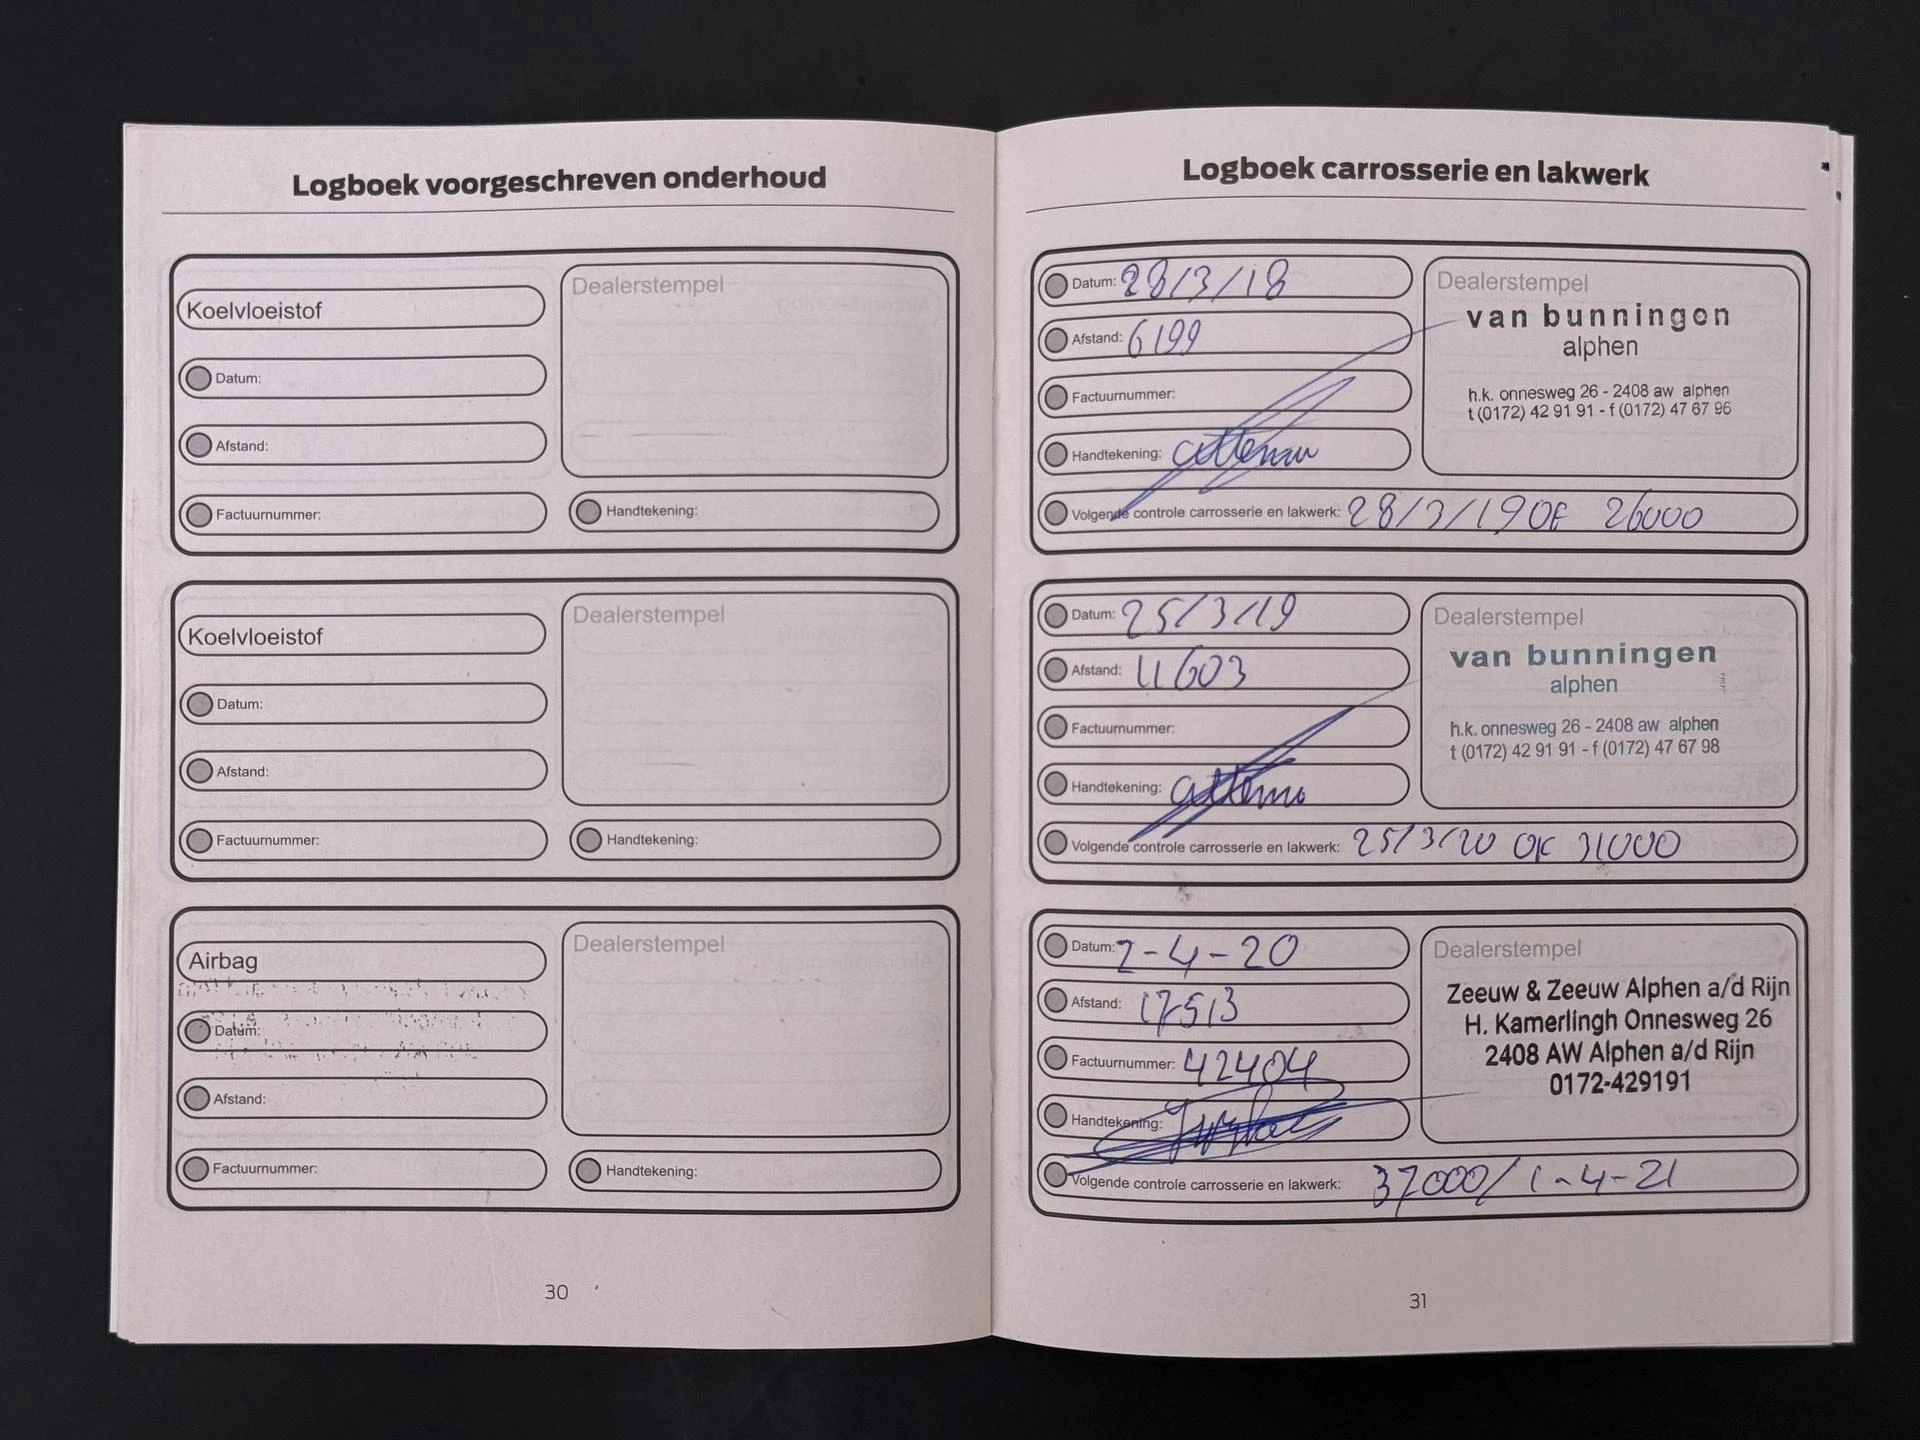 Logboek voorgeschreven onderhoud
Koelvloeistof
Datum:
Afstand:
Factuurnummer:
Dealerstempel
Handtekening:
Koelvloeistof
Datum:
Afstand:
Factuurnummer:
Dealerstempel
Handtekening:
Airbag
Datum:
Afstand:
Factuurnummer:
Dealerstempel
Handtekening:
30
Logboek carrosserie en lakwerk
Datum: 28/3/18
Afstand: 6199
Factuurnummer:
Handtekening:
Volgende controle carrosserie en lakwerk: 28/3/19 OF 26000
Dealerstempel
van bunningen
alphen
h.k. onnesweg 26 - 2408 aw alphen
t (0172) 42 91 91 - f (0172) 47 67 96
Datum: 25/3/19
Afstand: 11603
Factuurnummer:
Handtekening:
Volgende controle carrosserie en lakwerk: 25/3/20 OF 31000
Dealerstempel
van bunningen
alphen
h.k. onnesweg 26 - 2408 aw alphen
t (0172) 42 91 91 - f (0172) 47 67 98
Datum: 2-4-20
Afstand: 17513
Factuurnummer: 42404
Handtekening:
Volgende controle carrosserie en lakwerk: 37000/ 1-4-21
Dealerstempel
Zeeuw & Zeeuw Alphen a/d Rijn
H. Kamerlingh Onnesweg 26
2408 AW Alphen a/d Rijn
0172-429191
31